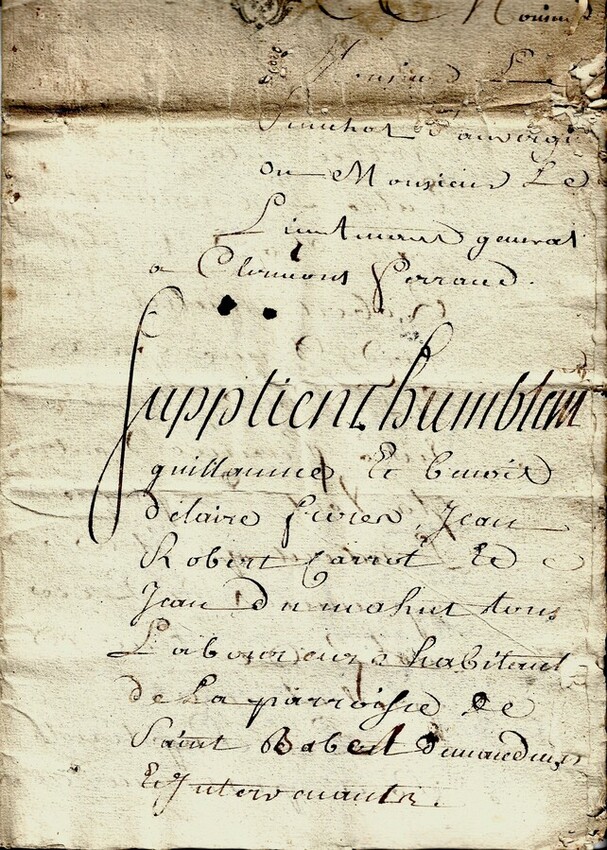 Monsieur Le
Senechal d'auvergn
ou Monsieur Le
Lieutenant general
a Clermont Ferrand.
Supplient humblem
guillaume Et benoit
délaire freres, Jean
Robert Carrot Et
Jean Dumahut tous
Laboureurs habitant
de La parroisse de
Saint Babel demandeurs
Et Intervenants.